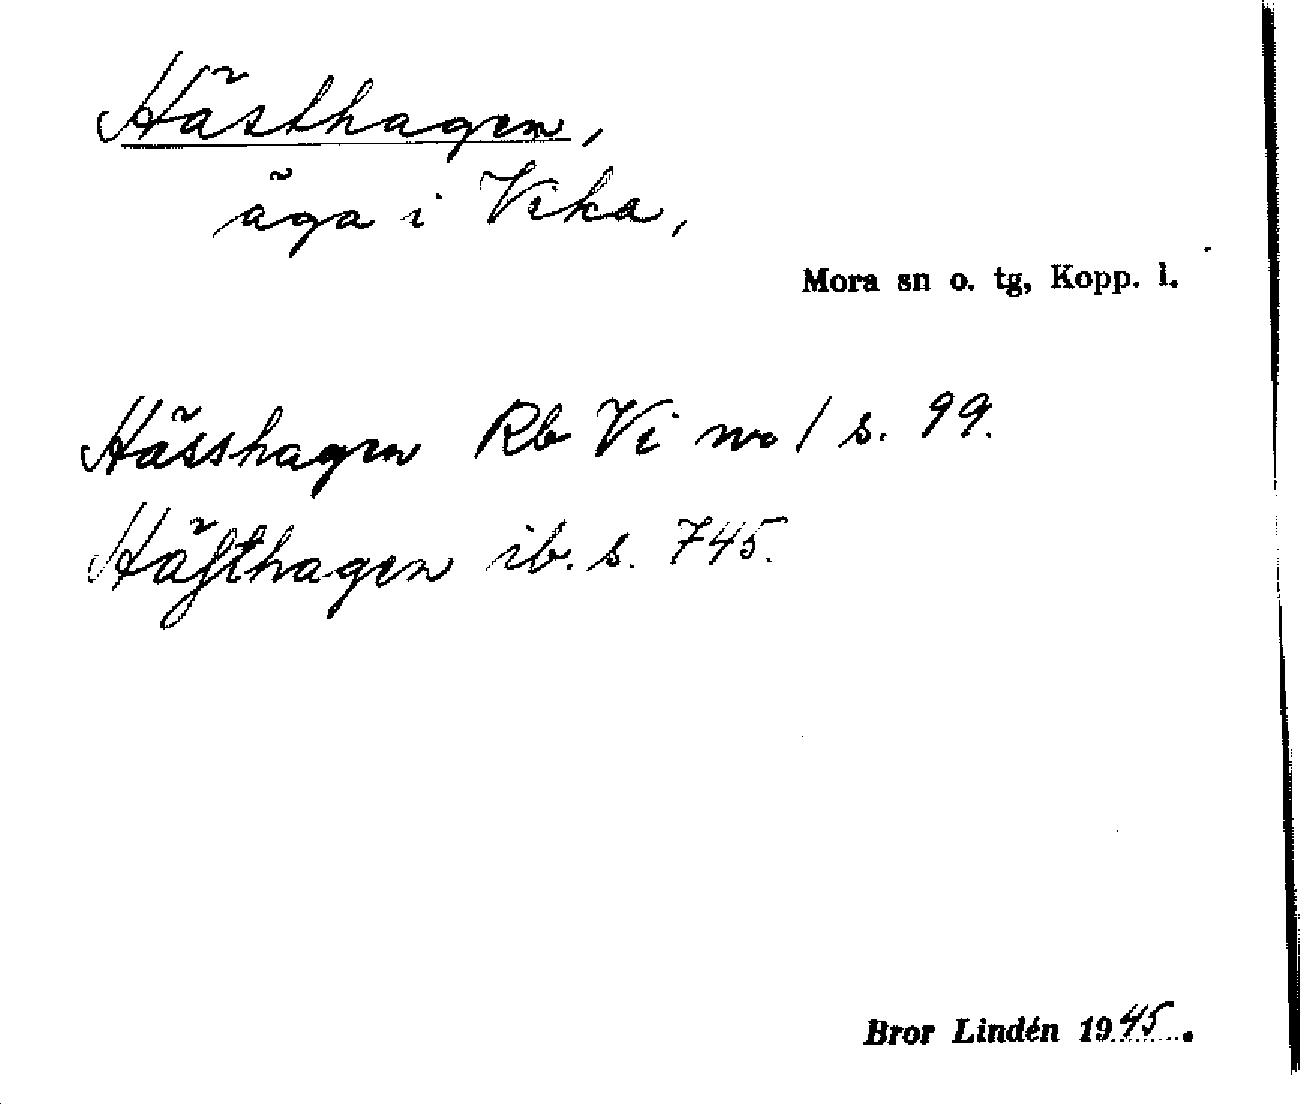 Hästhagen,
äga i Vika,
Mora sn o. tg, Kopp. l.
Hässhagen Rb Vi nr 1 s. 99.
Häſthagen ib. s. 745.
Bror Lindén 1945.